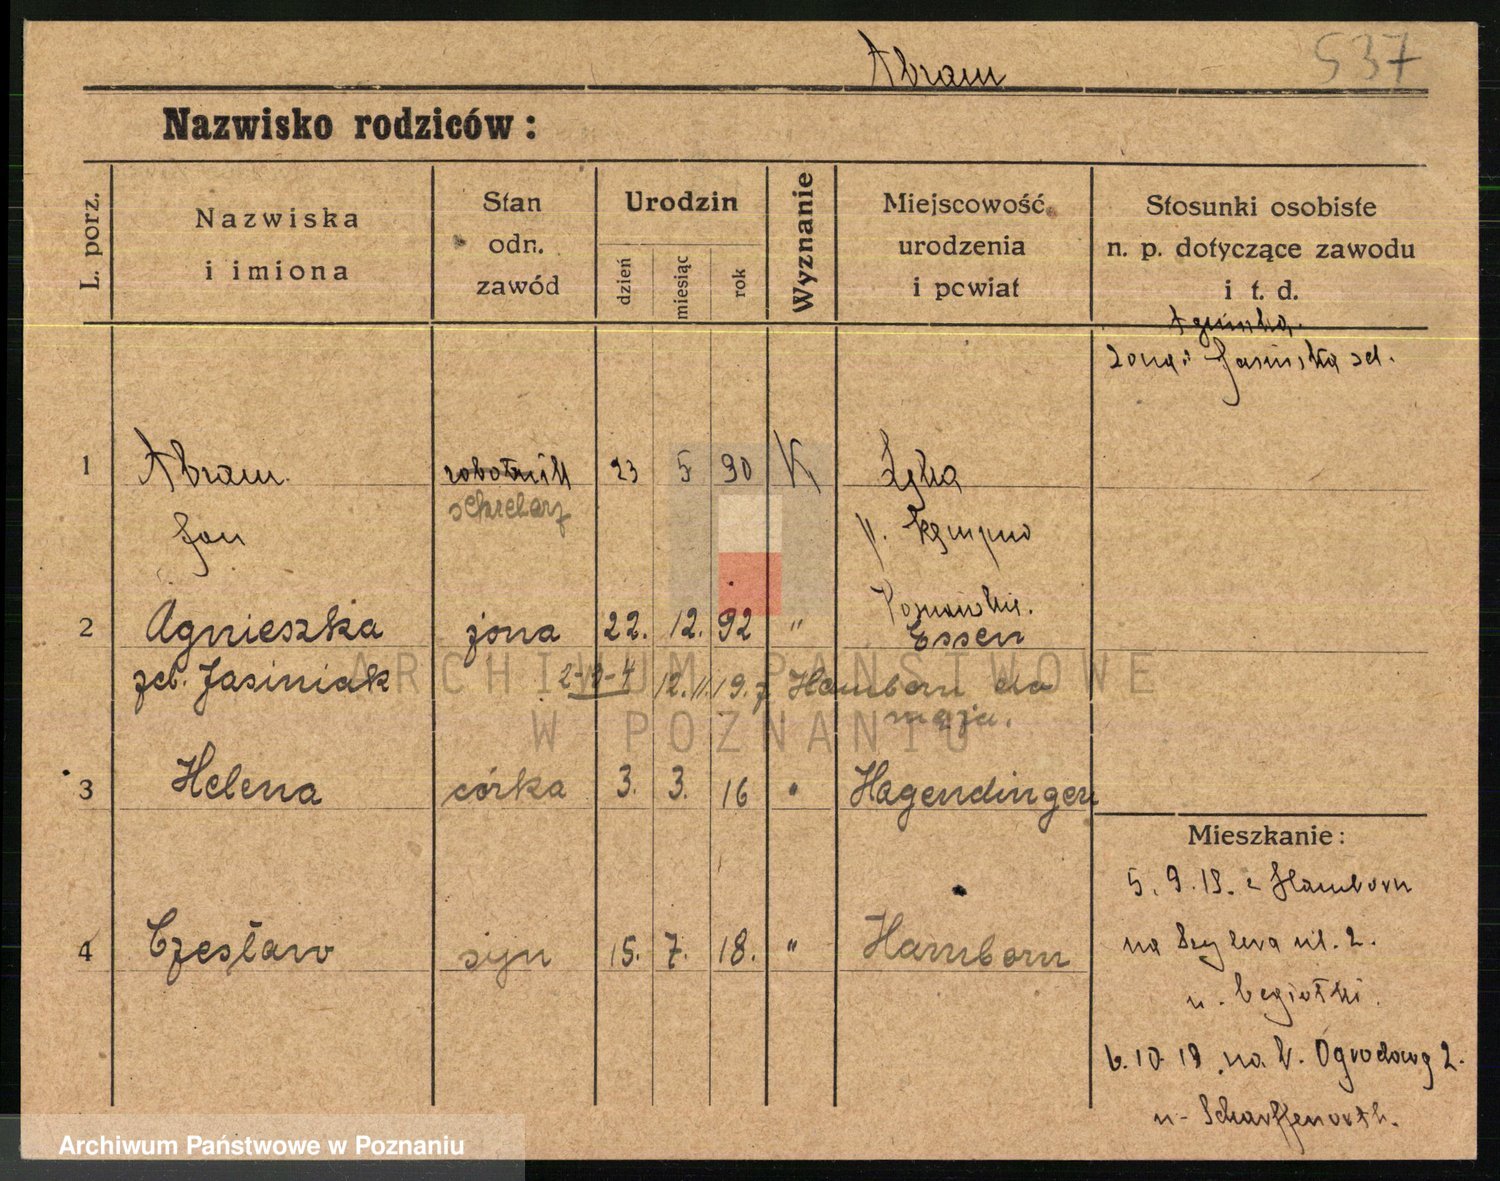 Abram 537
Nazwisko rodziców:
L. porz.
Nazwiska
i imiona
Stan
odn.
zawód
Urodzin
dzień
miesiąc
rok
Wyznanie
Miejscowość
urodzenia
i powiat
Stosunki osobiste
n. p. dotyczące zawodu
i t. d.
żona:
1 Abram robotnik 23 5 90 K
Jan
p. Kempno
2 Agnieszka żona 22. 12. 92 " Essen
zd. Jasiniak 12. 11. 19. z Hamborn do
męża.
3 Helena córka 3. 3. 16 " Hagendingen
Mieszkanie:
5. 9. 19. z Hamborn
4 Czesław syn 15. 7. 18. " Hamborn
ul. 2.
6. 10 19 na Ogrodową 2.
u. Scharffenorth.
ARCHIWUM PAŃSTWOWE
W POZNANIU
Archiwum Państwowe w Poznaniu